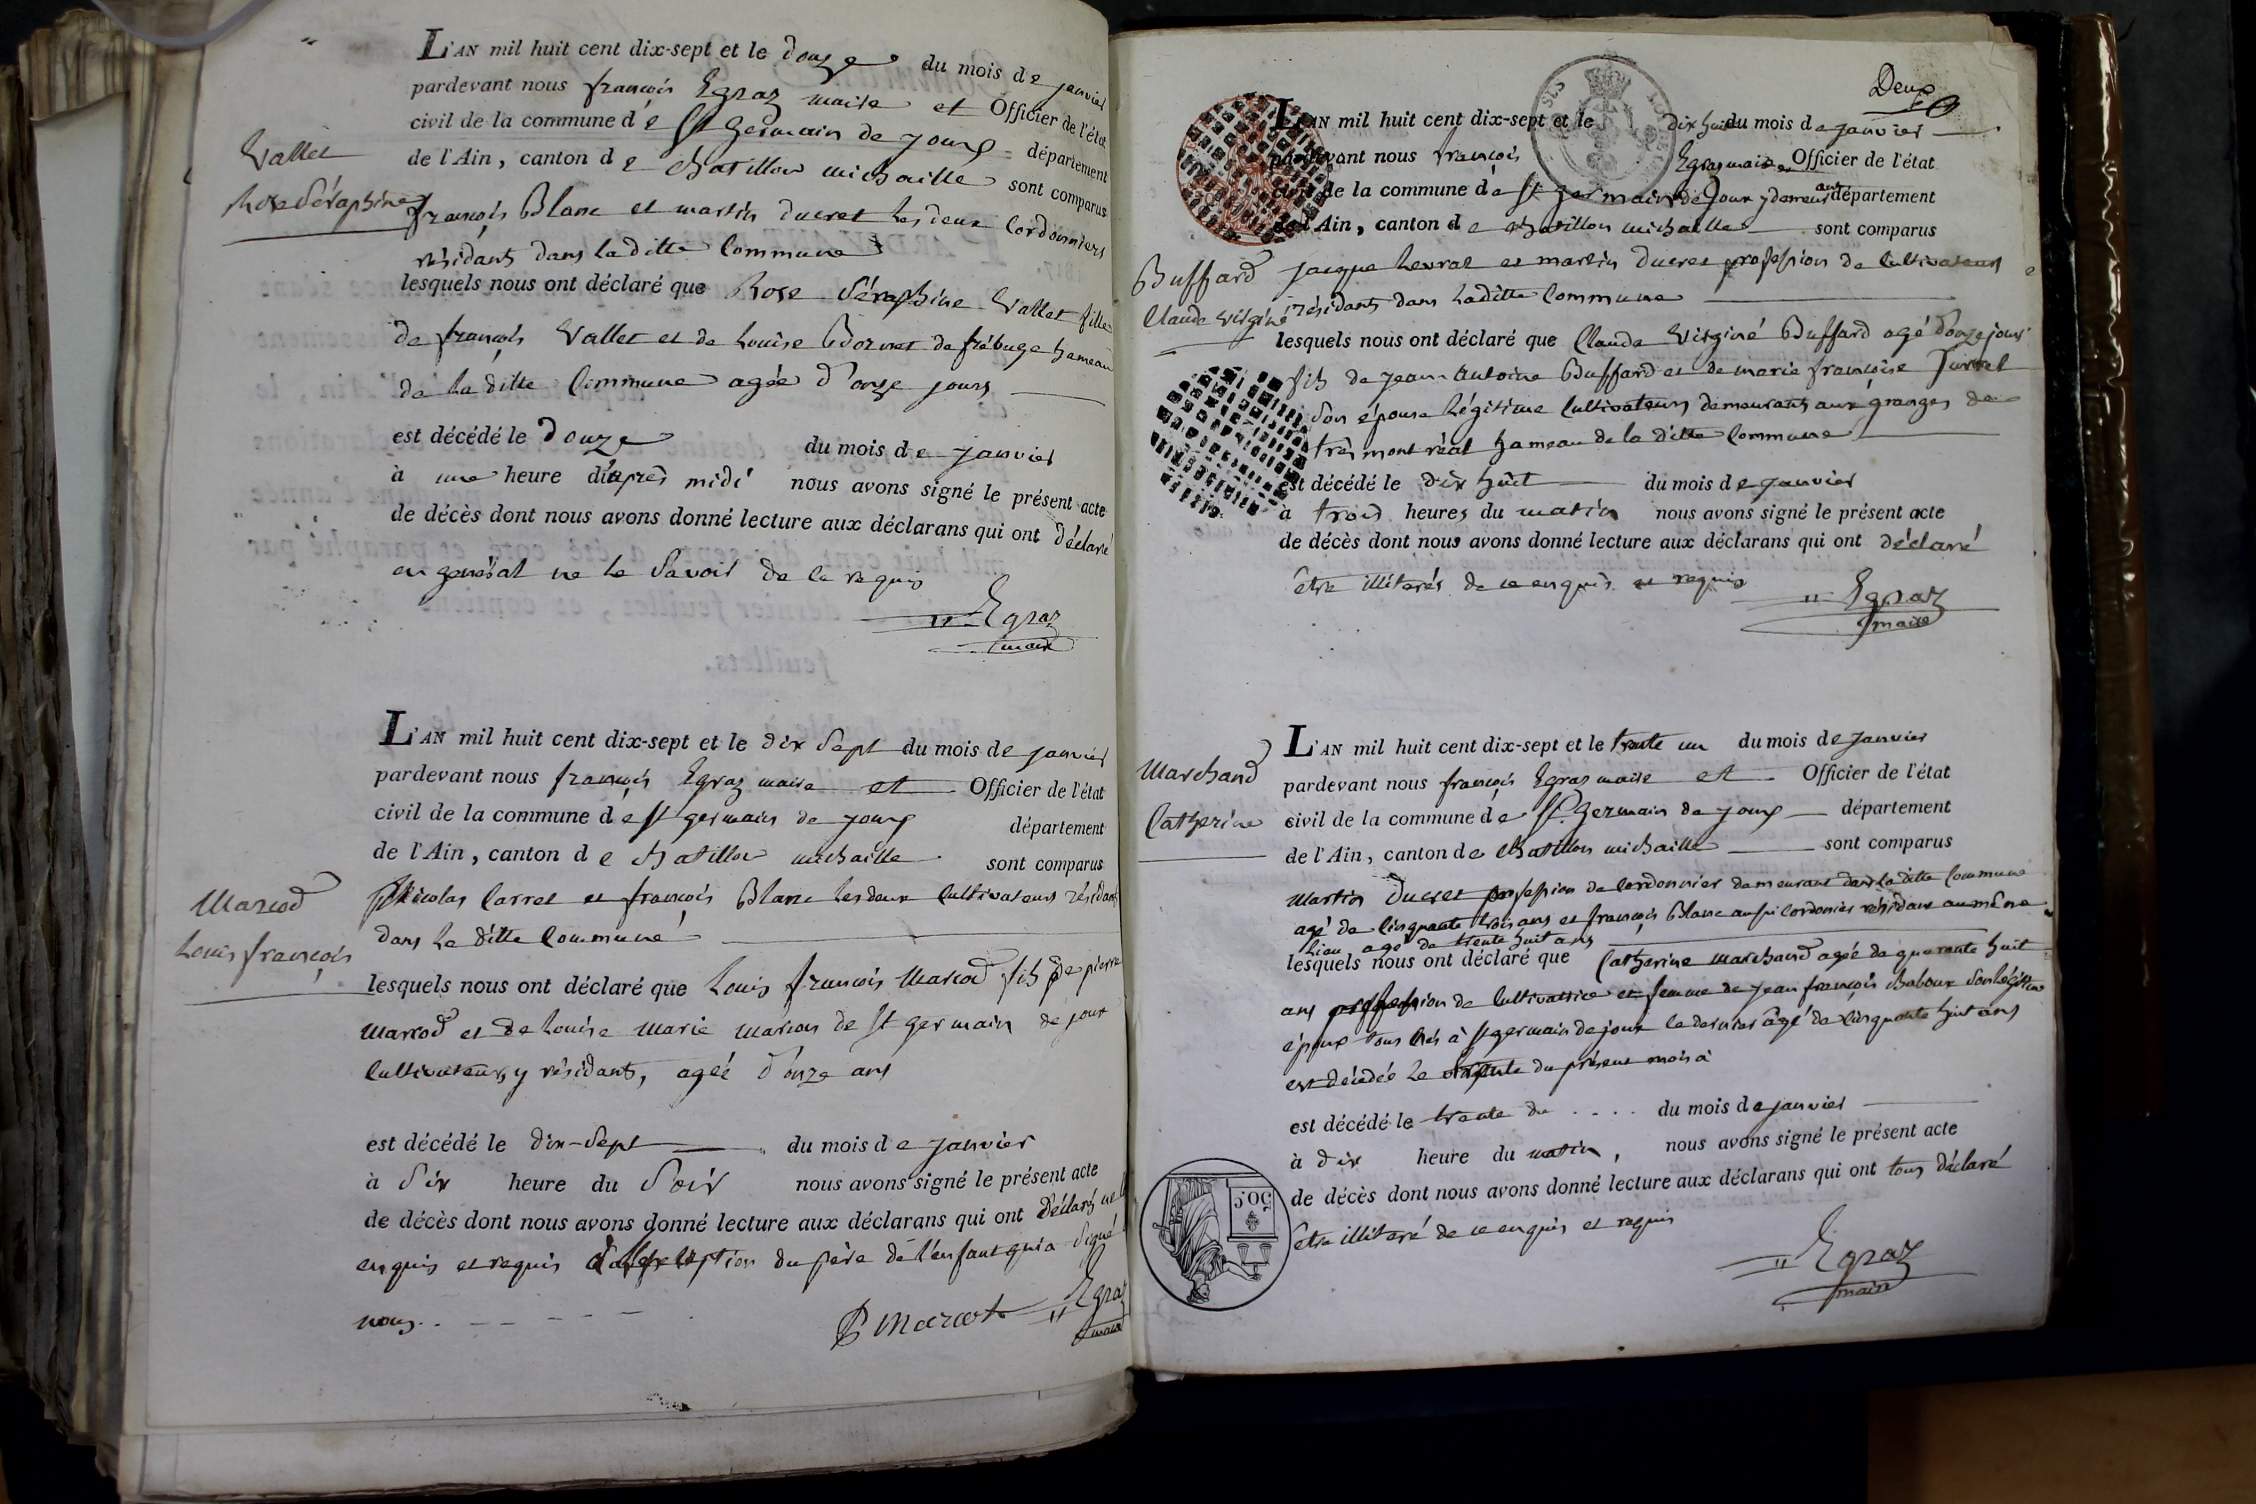 L'AN mil huit cent dix-sept et le douze du mois de janvier
pardevant nous françois Egraz maire et Officier de l'état
civil de la commune de St germain de joux département
de l'Ain, canton de chatillon michaille sont comparus
Vallet
Rose Séraphine
françois Blanc et martin ducret les deux Cordonniers
résidants dans la ditte Commune
lesquels nous ont déclaré que Rose Séraphine Vallet fille
de françois Vallet et de Louise Bornet de frébuge hameau
de la ditte Commune agée d'onze jours
est décédé le douze du mois de janvier
à une heure d'après midi nous avons signé le présent acte
de décès dont nous avons donné lecture aux déclarans qui ont déclaré
en général ne le Savoir de ce requis
Egraz
maire
L'AN mil huit cent dix-sept et le dix Sept du mois de janvier
pardevant nous françois Egraz maire et Officier de l'état
civil de la commune de St germain de joux département
de l'Ain, canton de chatillon michaille sont comparus
Marcod
Louis françois
Nicolas Carret et françois Blanc les deux Cultivateurs résidant
dans la ditte Commune
lesquels nous ont déclaré que Louis françois Marcod fils de pierre
Marcod et de Louise Marie Marion de St germain de joux
Cultivateurs y résidants, agée d'onze ans
est décédé le dix-Sept du mois de janvier
à Six heure du Soir nous avons signé le présent acte
de décès dont nous avons donné lecture aux déclarans qui ont déclaré ne
enquis et requis à l'exception du père de l'enfant qui a Signé
nous
P Marcot Egraz
maire
Deux
L'AN mil huit cent dix-sept et le dix huit du mois de janvier
pardevant nous françois Egraz maire et Officier de l'état
civil de la commune de St germain de Joux y demeurant département
de l'Ain, canton de chatillon michaille sont comparus
Buffard
Claude Virginé
jacque Levrat et martin Ducret profession de Cultivateurs
résidants dans la ditte Commune
lesquels nous ont déclaré que Claude Virginé Buffard agé d'onze jours
fils de jean Antoine Buffard et de marie françoise
Son épouse Légitime Cultivateurs demeurants aux granges de
trèsmontréal hameau de la ditte Commune
est décédé le dix huit du mois de janvier
à trois heures du matin nous avons signé le présent acte
de décès dont nous avons donné lecture aux déclarans qui ont déclaré
être illiterés de ce enquis et requis
Egraz
maire
L'AN mil huit cent dix-sept et le trente un du mois de janvier
pardevant nous françois Egraz maire et Officier de l'état
civil de la commune de St. germain de joux département
de l'Ain, canton de chatillon michaille sont comparus
Marchand
Catherine
Martin Ducret profession de Cordonnier demeurant dans la ditte Commune
agé de Cinquante trois ans et françois Blanc aussi Cordonier résidant au même
lieu agé de trente huit ans
lesquels nous ont déclaré que Catherine marchand agée de quarante huit
ans profession de Cultivatrice et femme de jean françois chaboux Son légitime
époux tous nés à St germain de joux le dernier agé de Cinquante huit ans
est décédée le trente du présent mois à
est décédé le trente du .... du mois de janvier
à dix heure du matin, nous avons signé le présent acte
de décès dont nous avons donné lecture aux déclarans qui ont tous déclaré
être illiteré de ce enquis et requis
50.C
Egraz
maire